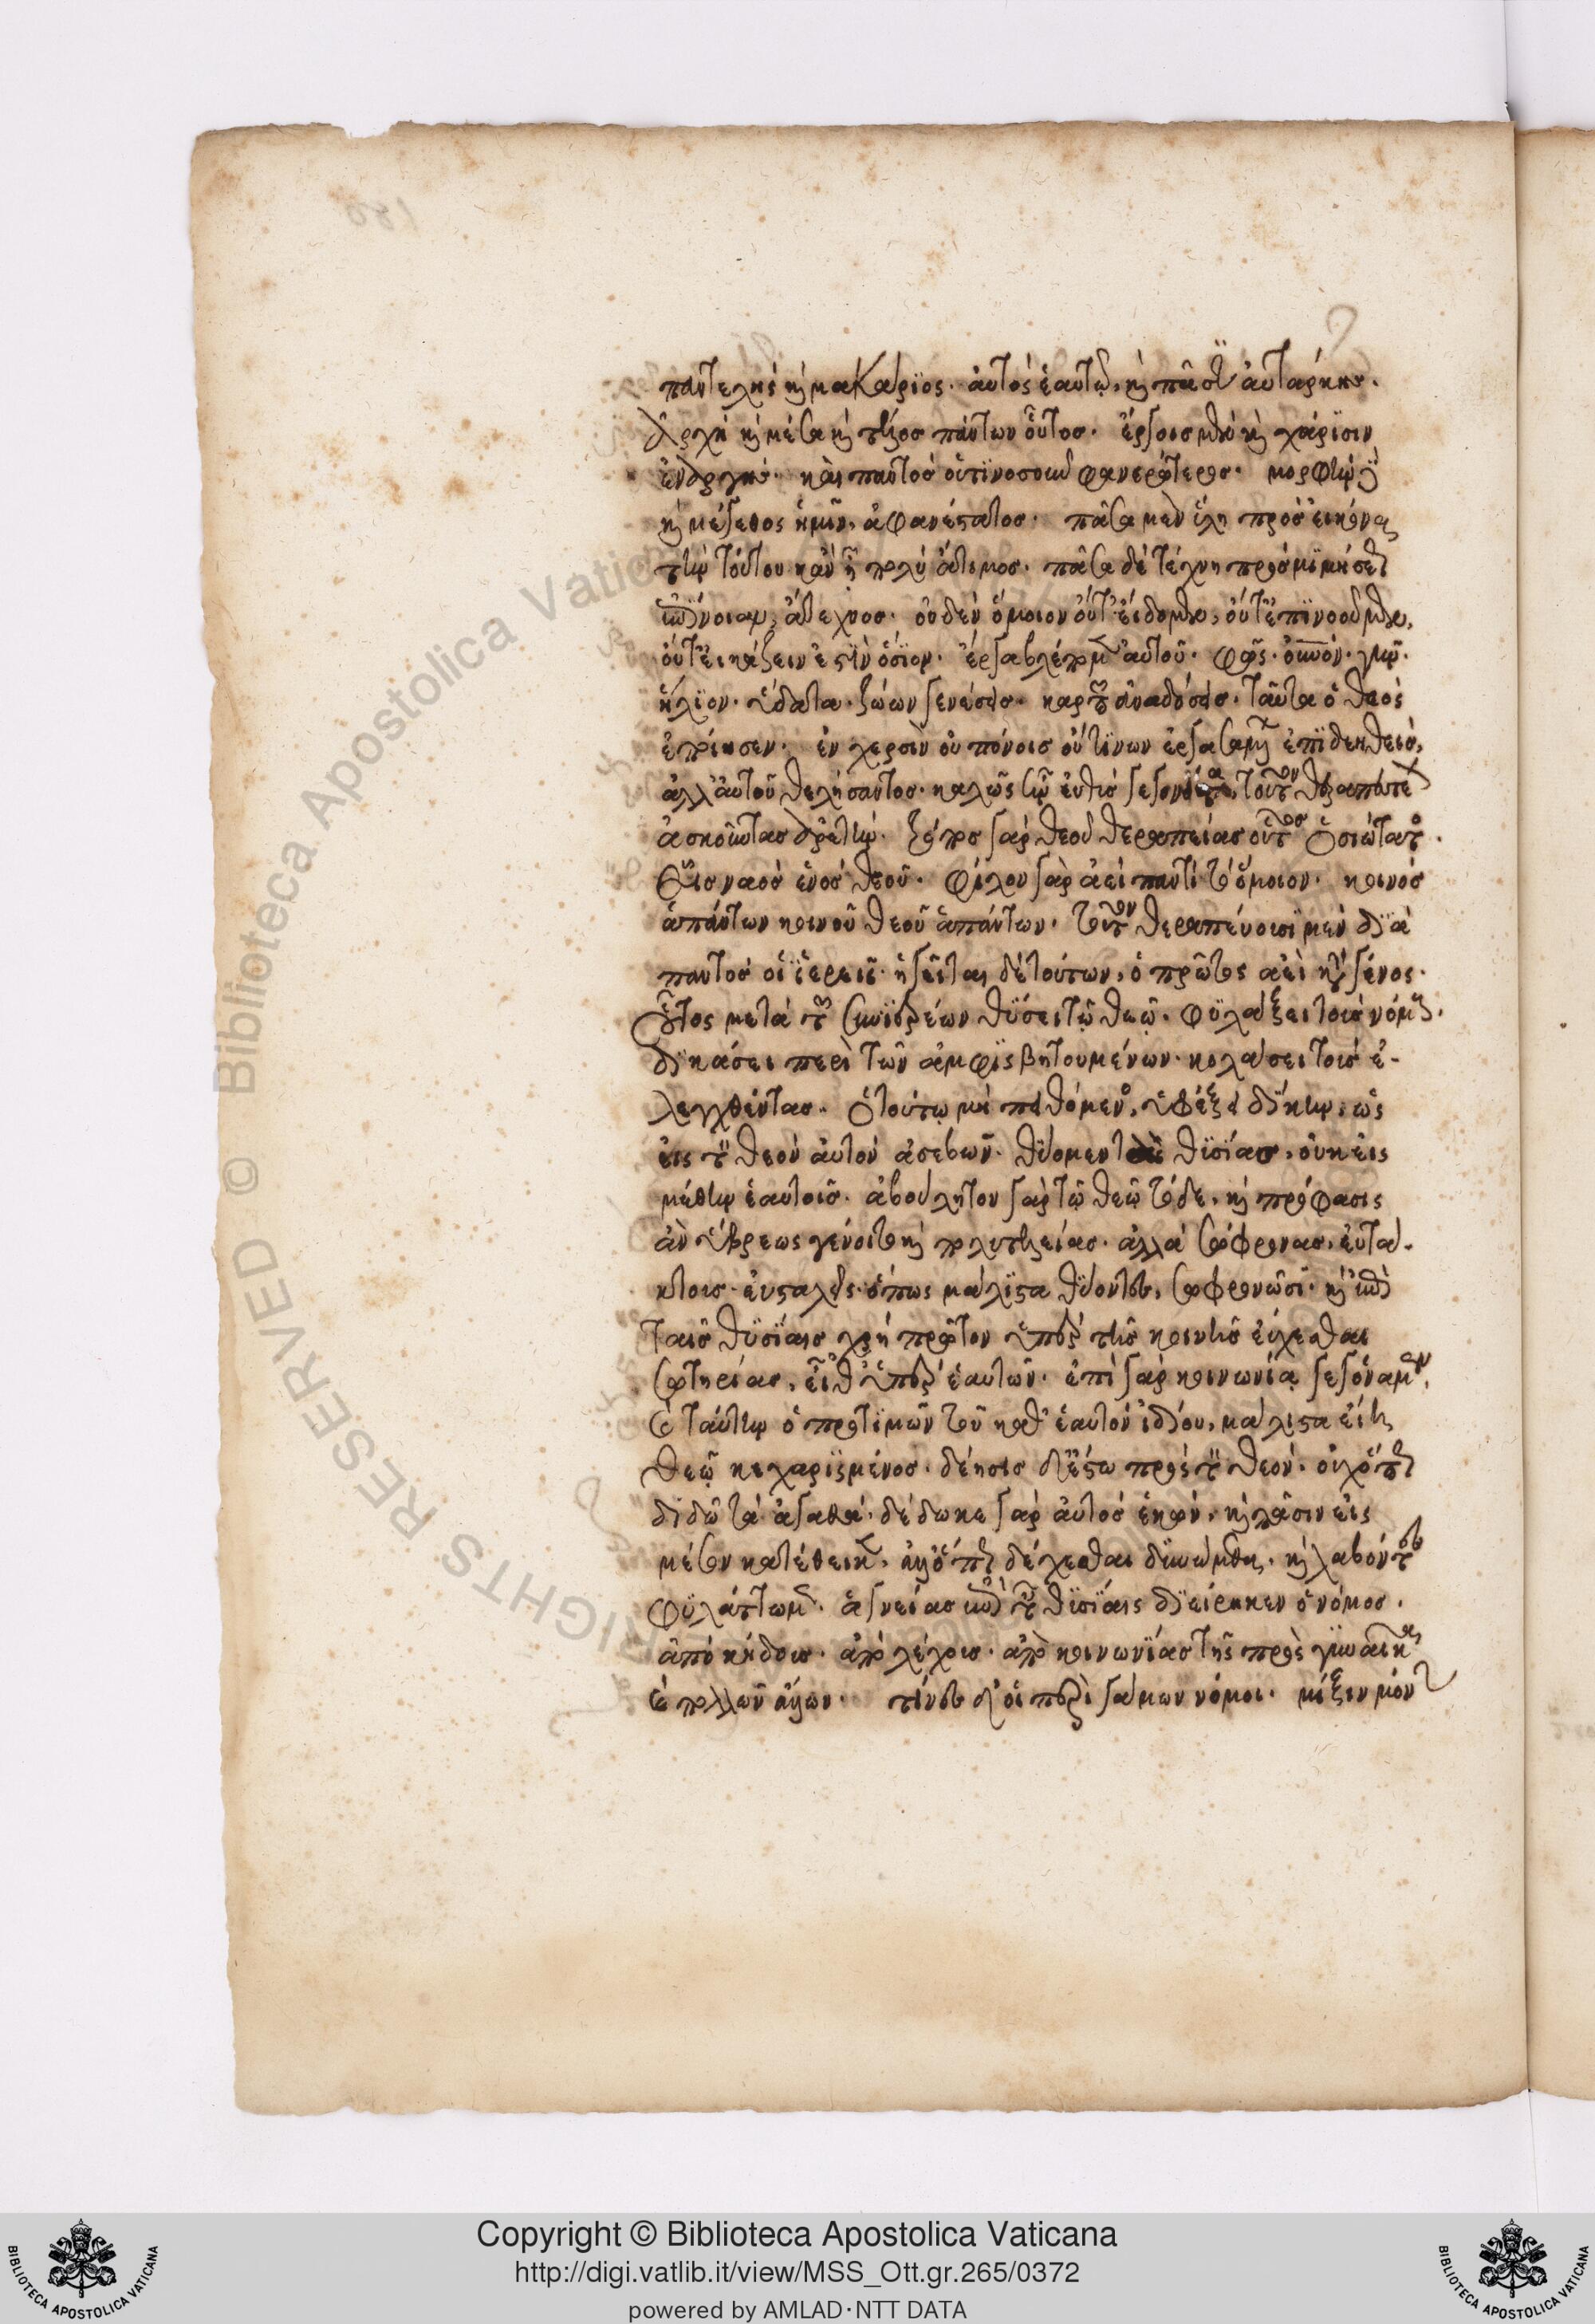 παντελὴς καὶ μακάριος. αὐτὸς ἑαυτῷ, καὶ πᾶσιν αὐτάρκης.
Ἀρχὴ καὶ μέσα καὶ τέλος πάντων οὗτος. ἔργοις μὲν καὶ χάρϊσιν
ἐναργής. καὶ παντὸς οὑτϊνοσοῦν φανερώτερος. μορφὴν δὲ
καὶ μέγεθος ἡμῖν, ἀφανέστατος. πᾶσα μὲν ὕλη πρὸς εἰκόνα
τὴν τούτου κἂν ᾖ πολὺ ἄτιμος. πᾶσα δὲ τέχνη πρὸς μϊμήσεως
ἄτεχνος. οὐδὲν ὅμοιον οὔτ' εἴδομεν, οὔτ' ἐπϊνοοῦμεν,
οὔτ' εἰκάζειν ἐστὶν ὅσϊον. ἔργα βλέπομεν αὐτοῦ. φῶς. οὐρανόν. γῆν.
ἥλϊον. ὕδατα. ζώων γενέσεις. καρπῶν ἀναδόσεις. ταῦτα ὁ θεὸς
ἐποίησεν. ἐν χερσὶν οὐ πόνοις οὔ τϊνων ἐργασαμένων ἐπϊδεηθείς,
ἀλλ' αὐτοῦ θελήσαντος. καλῶς ἦν εὐθὺς γεγονότα, τοῦτον
ἀσκοῦντας ἀρετήν. τόπος γὰρ θεοῦ θεραπείας οὗτος ὁσιώτατος.
Εἷς ναὸς ἑνὸς θεοῦ. φίλον γὰρ ἀεὶ παντὶ τὸ ὅμοιον. κοινὸς
ἁπάντων κοινοῦ θεοῦ ἁπάντων. τοῦτον θεραπεύουσι μὲν δϊὰ
παντὸς οἱ ἱερεῖς. ἡγεῖται δὲ τούτων, ὁ πρῶτος ἀεὶ κατὰ γένος.
Οὗτος μετὰ τῶν συνϊερέων θύσει τῷ θεῷ. φϋλάξει τοὺς νόμους.
δικάσει περὶ τῶν ἀμφϊσβητουμένων. κολάσει τοὺς ἐ-
λεγχθέντας. ὁ τούτῳ μὴ πειθόμενος, ὑφέξει δίκην, ὡς
εἰς τὸν θεὸν αὐτὸν ἀσεβῶν. θύομεν τὰς θϋσίας, οὐκ εἰς
μέθην ἑαυτοῖς. ἀβούλητον γὰρ τῷ θεῷ τόδε. καὶ πρόφασις
ἂν ὕβρεως γένοιτο καὶ πολυτελείας. ἀλλὰ σώφρονας. εὐτά-
κτους. εὐσταλεῖς. ὅπως μάλϊστα θύοντες, σωφρονῶσι. καὶ ἐπὶ
ταῖς θϋσίαις χρὴ πρῶτον ὑπὲρ τῆς κοινῆς εὔχεσθαι
σωτηρίας, εἶθ' ὑπὲρ ἑαυτῶν. ἐπὶ γὰρ κοινωνίᾳ γεγόναμεν,
καὶ ταύτην ὁ προτϊμῶν τοῦ καθ' ἑαυτὸν ἰδίου, μάλιστα εἴη
θεῷ κεχαρϊσμένος. δέησις δ' ἔστω πρὸς τὸν θεόν. οὐχ ὅπως
διδῷ τὰ ἀγαθά. δέδωκε γὰρ αὐτὸς ἑκών, καὶ πᾶσιν εἰς
μέσον κατέθεικεν. ἀλλ' ὅπως δέχεσθαι δυνώμεθα, καὶ λαβόντες
φϋλάττωμεν. ἁγνείας ἐπὶ ταῖς θϋσίαις δϊείρηκεν ὁ νόμος.
ἀπὸ κήδους. ἀπὸ λέχους. ἀπὸ κοινωνίας τῆς πρὸς γυναῖκα
καὶ πολλῶν ἄλλων. τίνες δ' οἱ περὶ γάμων νόμοι. μίξιν μόνην
Copyright © Biblioteca Apostolica Vaticana
http://digi.vatlib.it/view/MSS_Ott.gr.265/0372
powered by AMLAD·NTT DATA